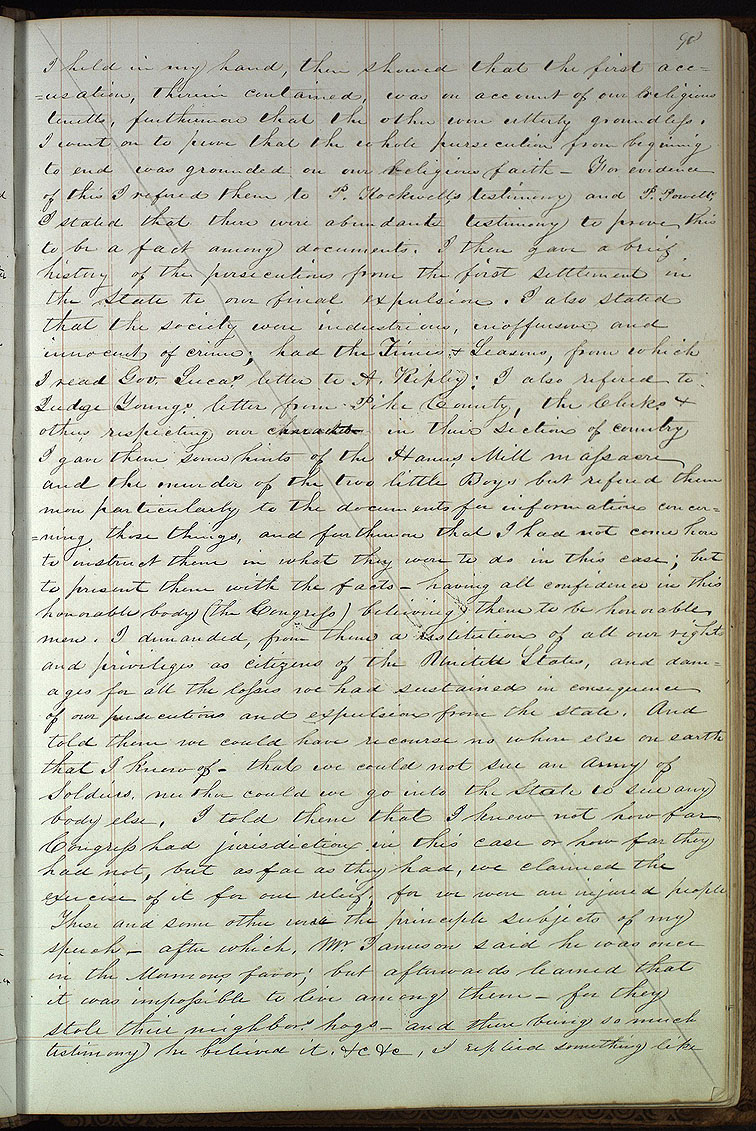 98
I held in my hand, then showed that the first acc=
=usation, therein contained, was on account of our religious
tenetts, furthermore that the other were utterly groundless.
I went on to prove that the whole pursecution from begining
to end was grounded on our religious faith— For evidence
of this I refered them to P. Rockwells testimony and P. Powell,
I stated that there were abundante testimony to prove this
to be a fact among documents. I then gave a brief
history of the persecutions from the first settlement in
the State to our final expulsion. I also stated
that the society were industrious, inoffensive and
innocent of crime; had the Times & Seasons, from which
I read Gov Lucas letter to A. Ripley; I also refered to
Judge Youngs letter from Pike County, the Clerks &
others respecting our character in their section of country
I gave them some hints of the Hauns Mill massacre
and the murder of the two little Boys but refered them
more particularly to the documents for information concer-
=ning those things, and furthermore that I had not come here
to instruct them in what they were to do in this case; but
to present them with the facts— having all confidence in this
honorable body (the Congress) believing them to be honorable
men. I demanded, from them a restitution of all our rights
and privileges as citizens of the United States, and dam-
ages for all the losses we had sustained in consequence
of our pursecutions and expulsion from the state. And
told them we could have recourse no where else on earth
that I knew of— that we could not sue an army of
Soldiers, neither could we go into the State to sue any
body else. I told them that I knew not how far
Congress had jurisdiction in this case or how far they
had not, but as far as they had, we claimed the
exercise of it for our relief, for we were an injured people
These and some other were the principle subjects of my
speech— after which, Mr. Jameson said he was once
in the Mormons favor; but afterwards learned that
it was impossible to live among them— for they
stole their neighbors hogs— and there being so much
testimony he believed it, &c &c, I replied something like